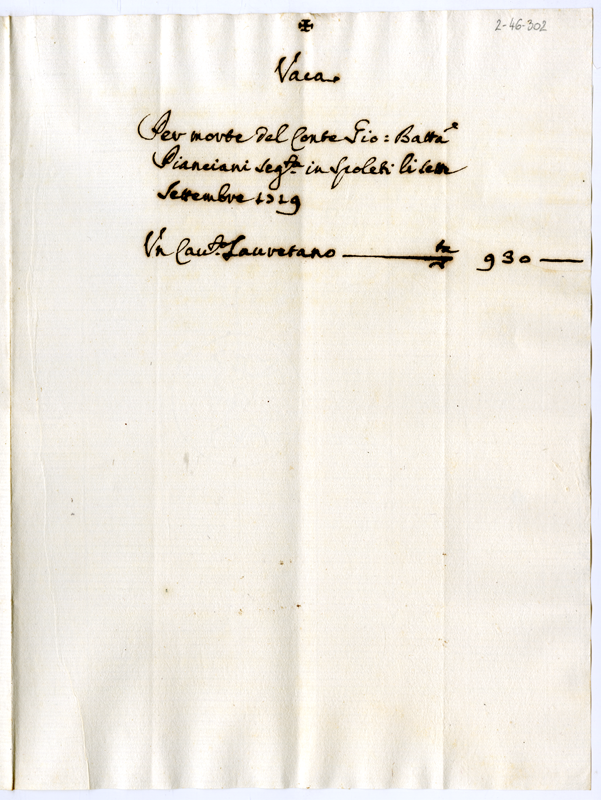 ✠
2-46-302
Vaca
Per morte del Conte Gio: Batt͠a
Pianciani seg.ta in Spoleti li sette
Settembre 1729
Un Cau.to Lauretano — 930 —